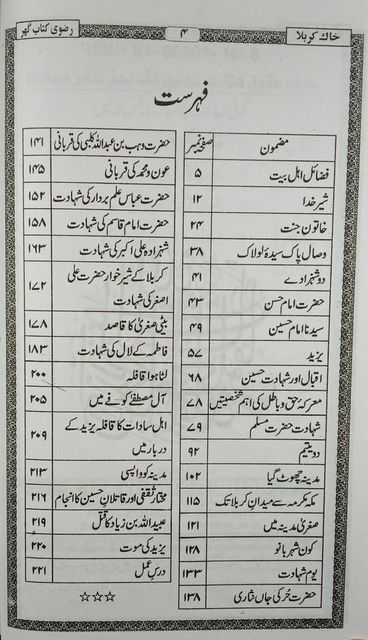 خاکِ کربلا ۴ رضوی کتاب گھر
فہرست
مضمون صفحہ نمبر
فضائل اہل بیت ۵
شیر خدا ۱۲
خاتون جنت ۲۴
وصال پاک سیدۂ لولاک ۳۸
دو شہزادے ۴۱
حضرت امام حسن ۴۳
سیدنا امام حسین ۴۹
یزید ۵۷
اقبال اور شہادت حسین ۶۸
معرکۂ حق و باطل کی اہم شخصیتیں ۷۸
شہادت حضرت مسلم ۷۹
دو یتیم ۹۲
مدینہ چھوٹ گیا ۱۰۲
مکہ مکرمہ سے میدانِ کربلا تک ۱۱۵
صغریٰ مدینہ میں ۱۲۱
کون شہر بانو ۱۲۸
یوم شہادت ۱۳۳
حضرت حُر کی جاں نثاری ۱۳۸
حضرت وہب بن عبداللہ کلبی کی قربانی ۱۴۱
عون و محمد کی قربانی ۱۴۵
حضرت عباس علم بردار کی شہادت ۱۵۲
حضرت امام قاسم کی شہادت ۱۵۸
شہزادہ علی اکبر کی شہادت ۱۶۳
کربلا کے شیر خوار حضرت علی
اصغر کی شہادت ۱۷۲
بیٹی صغریٰ کا قاصد ۱۷۸
فاطمہ کے لال کی شہادت ۱۸۳
لٹا ہوا قافلہ ۲۰۰
آل مصطفیٰ کوفے میں ۲۰۵
اہل سادات کا قافلہ یزید کے
دربار میں ۲۰۹
مدینہ کو واپسی ۲۱۳
مختار ثقفی اور قاتلانِ حسین کا انجام ۲۱۶
عبیداللہ بن زیاد کا قتل ۲۱۹
یزید کی موت ۲۲۰
درسِ عمل ۲۲۱
☆☆☆